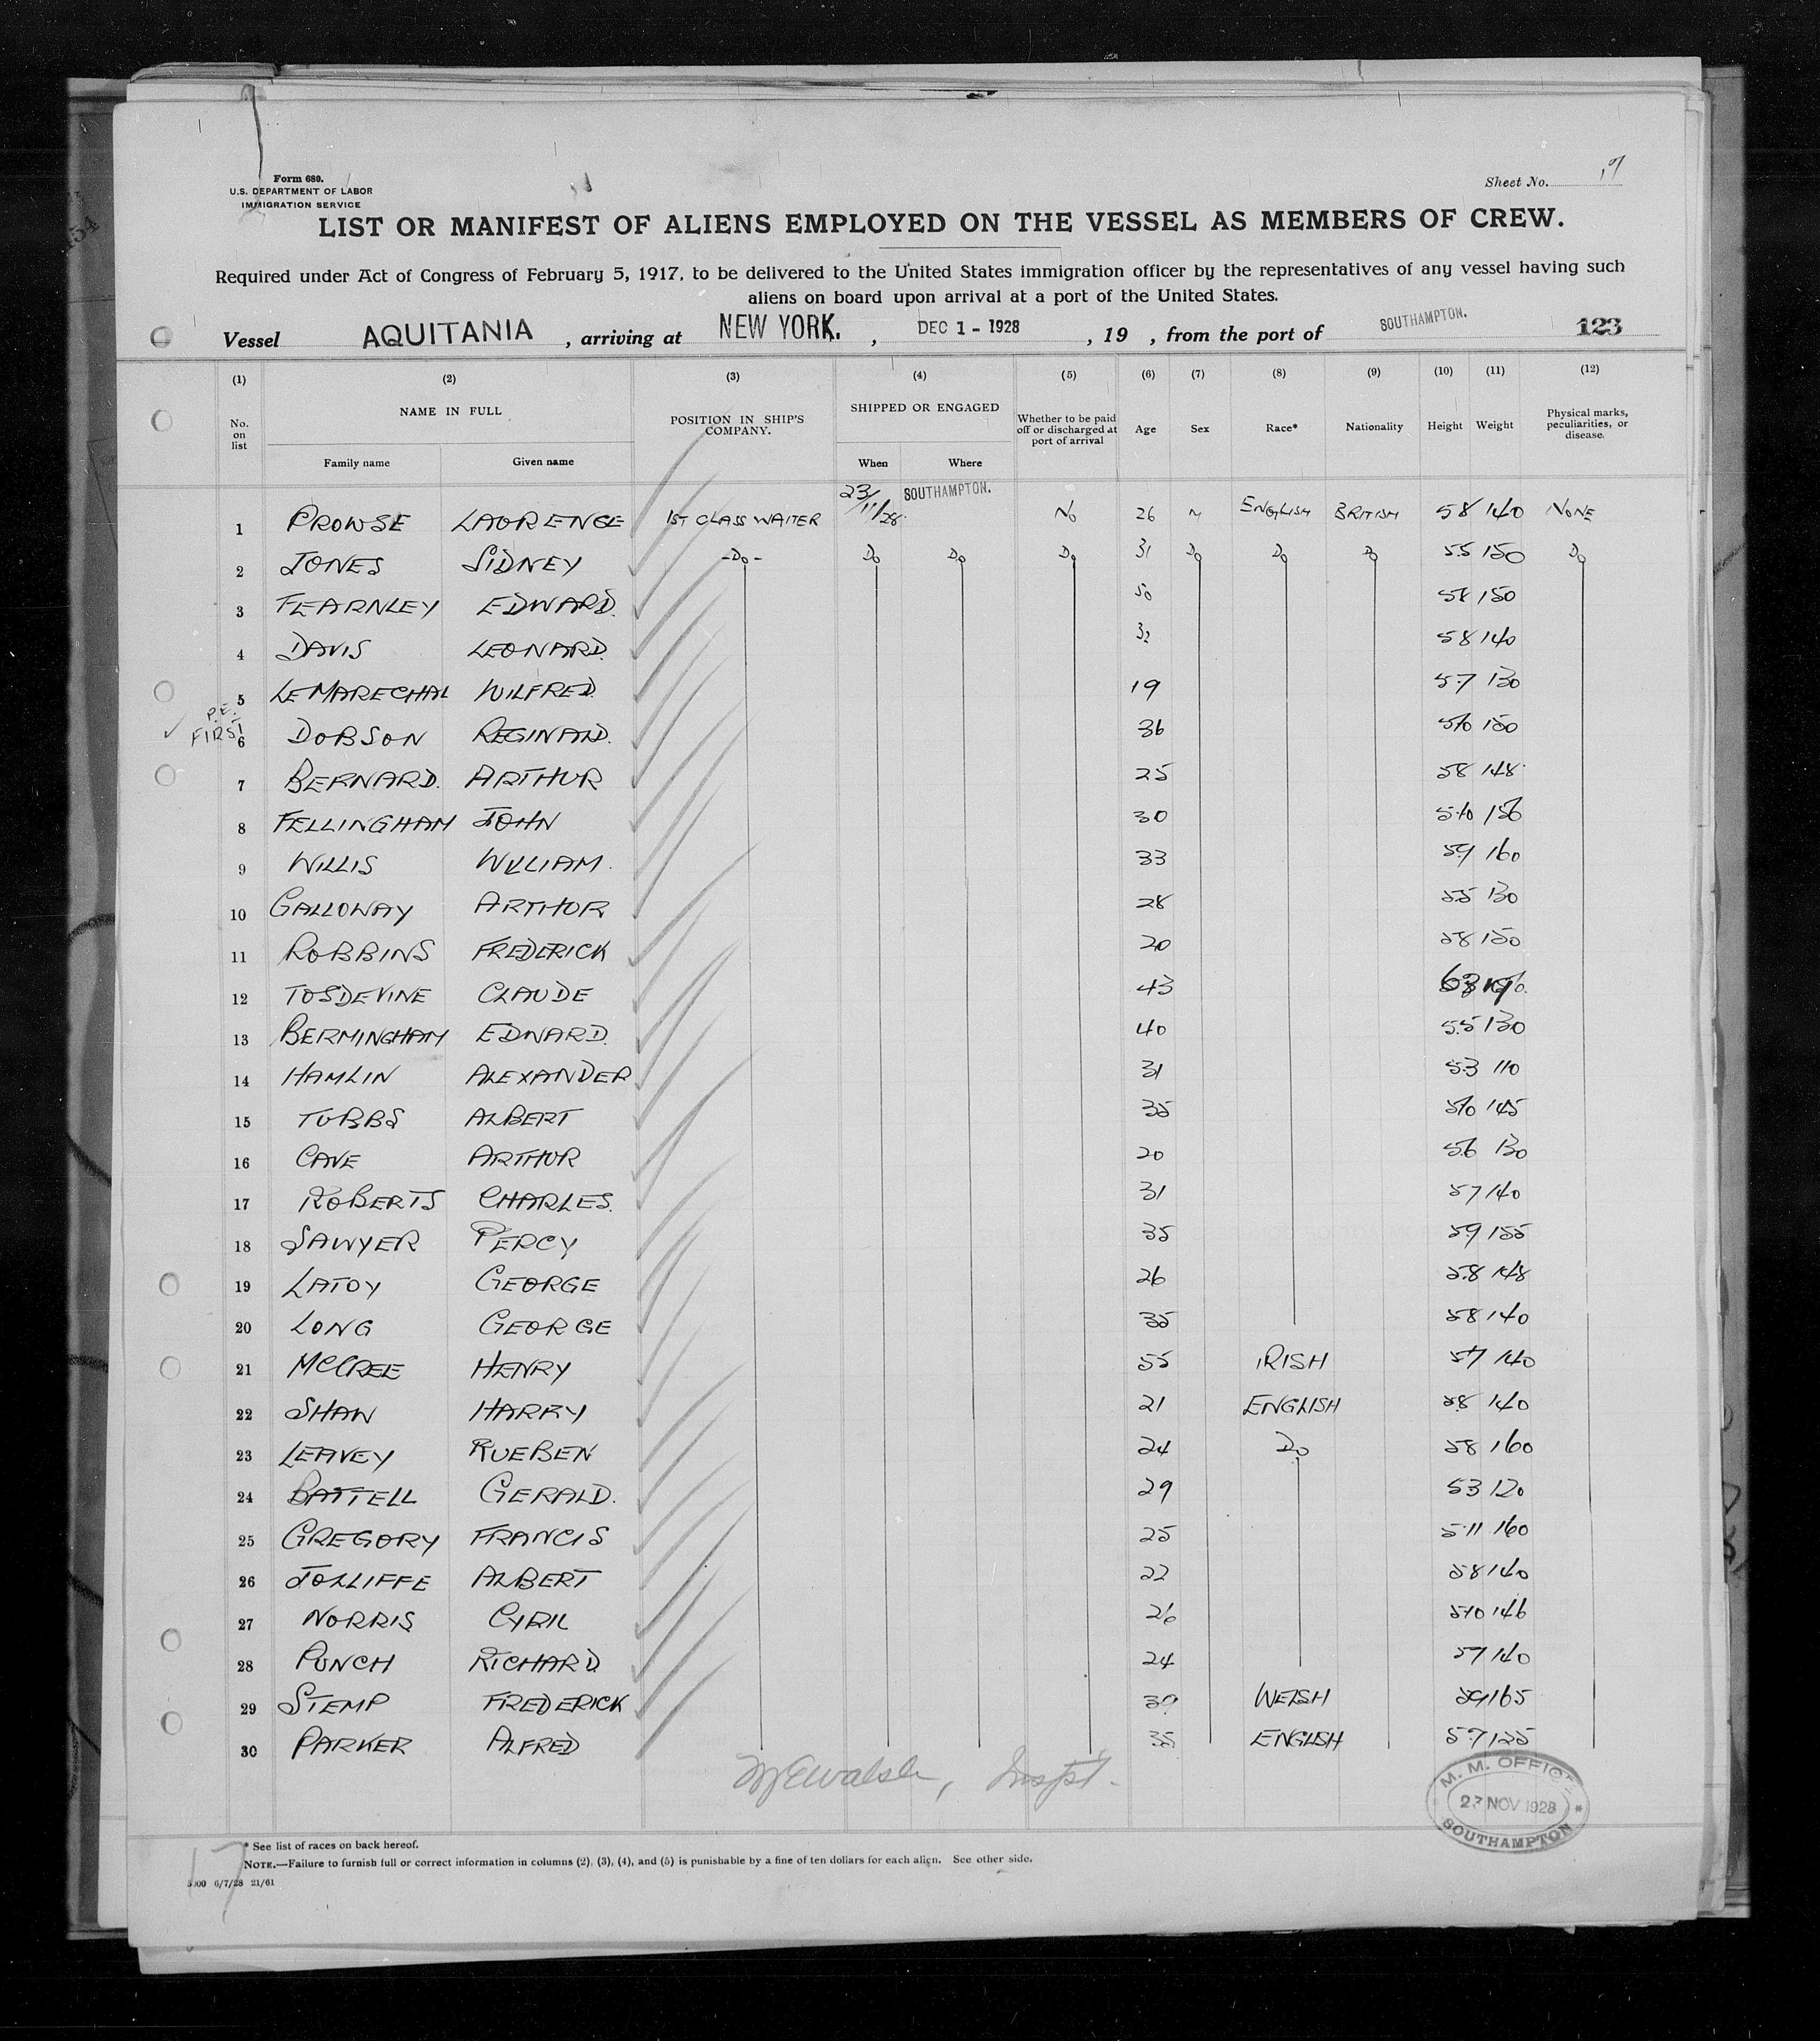 Form 680.
U.S. DEPARTMENT OF LABOR
IMMIGRATION SERVICE
Sheet No.
LIST OR MANIFEST OF ALIENS EMPLOYED ON THE VESSEL AS MEMBERS OF CREW.
Required under Act of Congress of February 5, 1917, to be delivered to the United States immigration officer by the representatives of any vessel having such
aliens on board upon arrival at a port of the United States.
Vessel AQUITANIA, arriving at NEW YORK., DEC 1 - 1928, 19 , from the port of SOUTHAMPTON. 123
(1) (2) (3) (4) (5) (6) (7) (8) (9) (10) (11) (12)
No. on list NAME IN FULL POSITION IN SHIP'S COMPANY. SHIPPED OR ENGAGED Whether to be paid off or discharged at port of arrival Age Sex Race* Nationality Height Weight Physical marks, peculiarities, or disease.
Family name Given name When Where
1 PROWSE LAURENCE 1ST CLASS WAITER 23/11/28. SOUTHAMPTON. No 26 M ENGLISH BRITISH 58 140 NONE
2 JONES SIDNEY -Do- Do Do Do 31 Do Do Do 5.5 150 Do
3 FEARNLEY EDWARD. 50 58 150
4 DAVIS LEONARD. 32 58 140
5 LE MARECHAL WILFRED. 19 5.7 130
P.E. FIRST
6 DOBSON REGINALD. 36 5/10 150
7 BERNARD. ARTHUR 25 58 148
8 FELLINGHAM JOHN 30 5.10 156
9 WILLIS WILLIAM. 33 5.9 160
10 GALLOWAY ARTHUR 28 5.5 130
11 ROBBINS FREDERICK 20 58 150
12 TOSDEVINE CLAUDE 43
13 BERMINGHAM EDWARD. 40 5.5 130
14 HAMLIN ALEXANDER 31 5.3 110
15 TUBBS ALBERT 35 5/10 145
16 CAVE ARTHUR 20 5.6 130
17 ROBERTS CHARLES. 31 57 140
18 SAWYER PERCY 35 5.9 155
19 LATOY GEORGE 26 5.8 148
20 LONG GEORGE 35 58 140
21 MCCREE HENRY 55 IRISH 57 140
22 SHAW HARRY 21 ENGLISH 5.8 140
23 LEAVEY RUEBEN 24 Do 58 160
24 BATTELL GERALD. 29 53 120
25 GREGORY FRANCIS 25 5.11 160
26 JOLLIFFE ALBERT 22 58 140
27 NORRIS CYRIL 26 5.10 146
28 PUNCH RICHARD 24 57 140
29 STEMP FREDERICK WELSH 5.9 165
30 PARKER ALFRED 35 ENGLISH 5.7 125
Walsh, Inspt.
M. M. OFFICE
27 NOV 1928
SOUTHAMPTON
* See list of races on back hereof.
NOTE.—Failure to furnish full or correct information in columns (2), (3), (4), and (5) is punishable by a fine of ten dollars for each alien. See other side.
5000 6/7/28 21/61
17